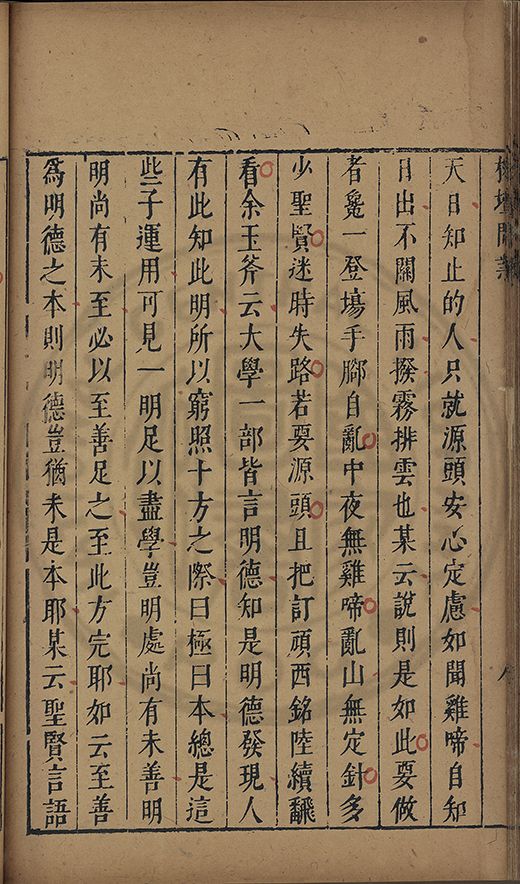 榕壇問業
八
天日知止的人只就源頭安心定慮如聞雞啼自知
日出不關風雨撥霧排雲也某云說則是如此要做
者毚一登塲手腳自亂中夜無雞啼亂山無定針多
少聖賢迷時失路若要源頭且把訂頑西銘陸續飜
看余玉斧云大學一部皆言明德知是明德發現人
有此知此明所以窮照十方之際曰極曰本總是這
些子運用可見一明足以盡學豈明處尚有未善明
明尚有未至必以至善足之至此方完耶如云至善
為明德之本則明德豈猶未是本耶某云聖賢言語